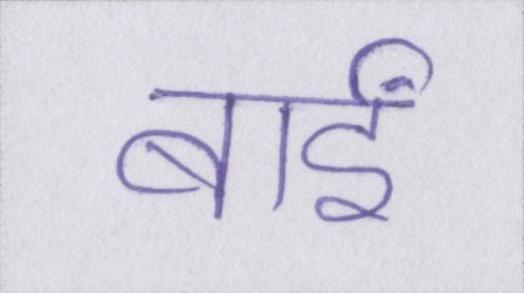 बाईं